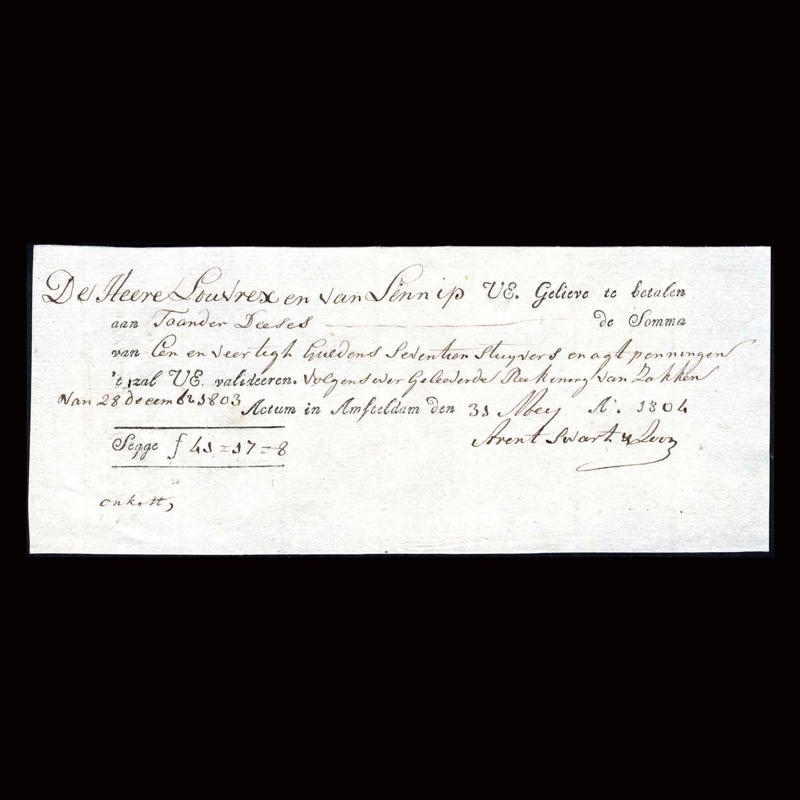 De Heere Louvrex en van Lennip UE. Gelieve te betalen
aan Toonder Deeses de Somma
van Een en veertigh Guldens Seventien Stuyvers en agt penningen
't zal UE. valideeren. volgens over Geleeverde Reekening van Zakken
van 28 december 1803 Actum in Amsteldam den 31 Mey Ao. 1804
Segge f 41=17=8
Arent Swart & Zoon